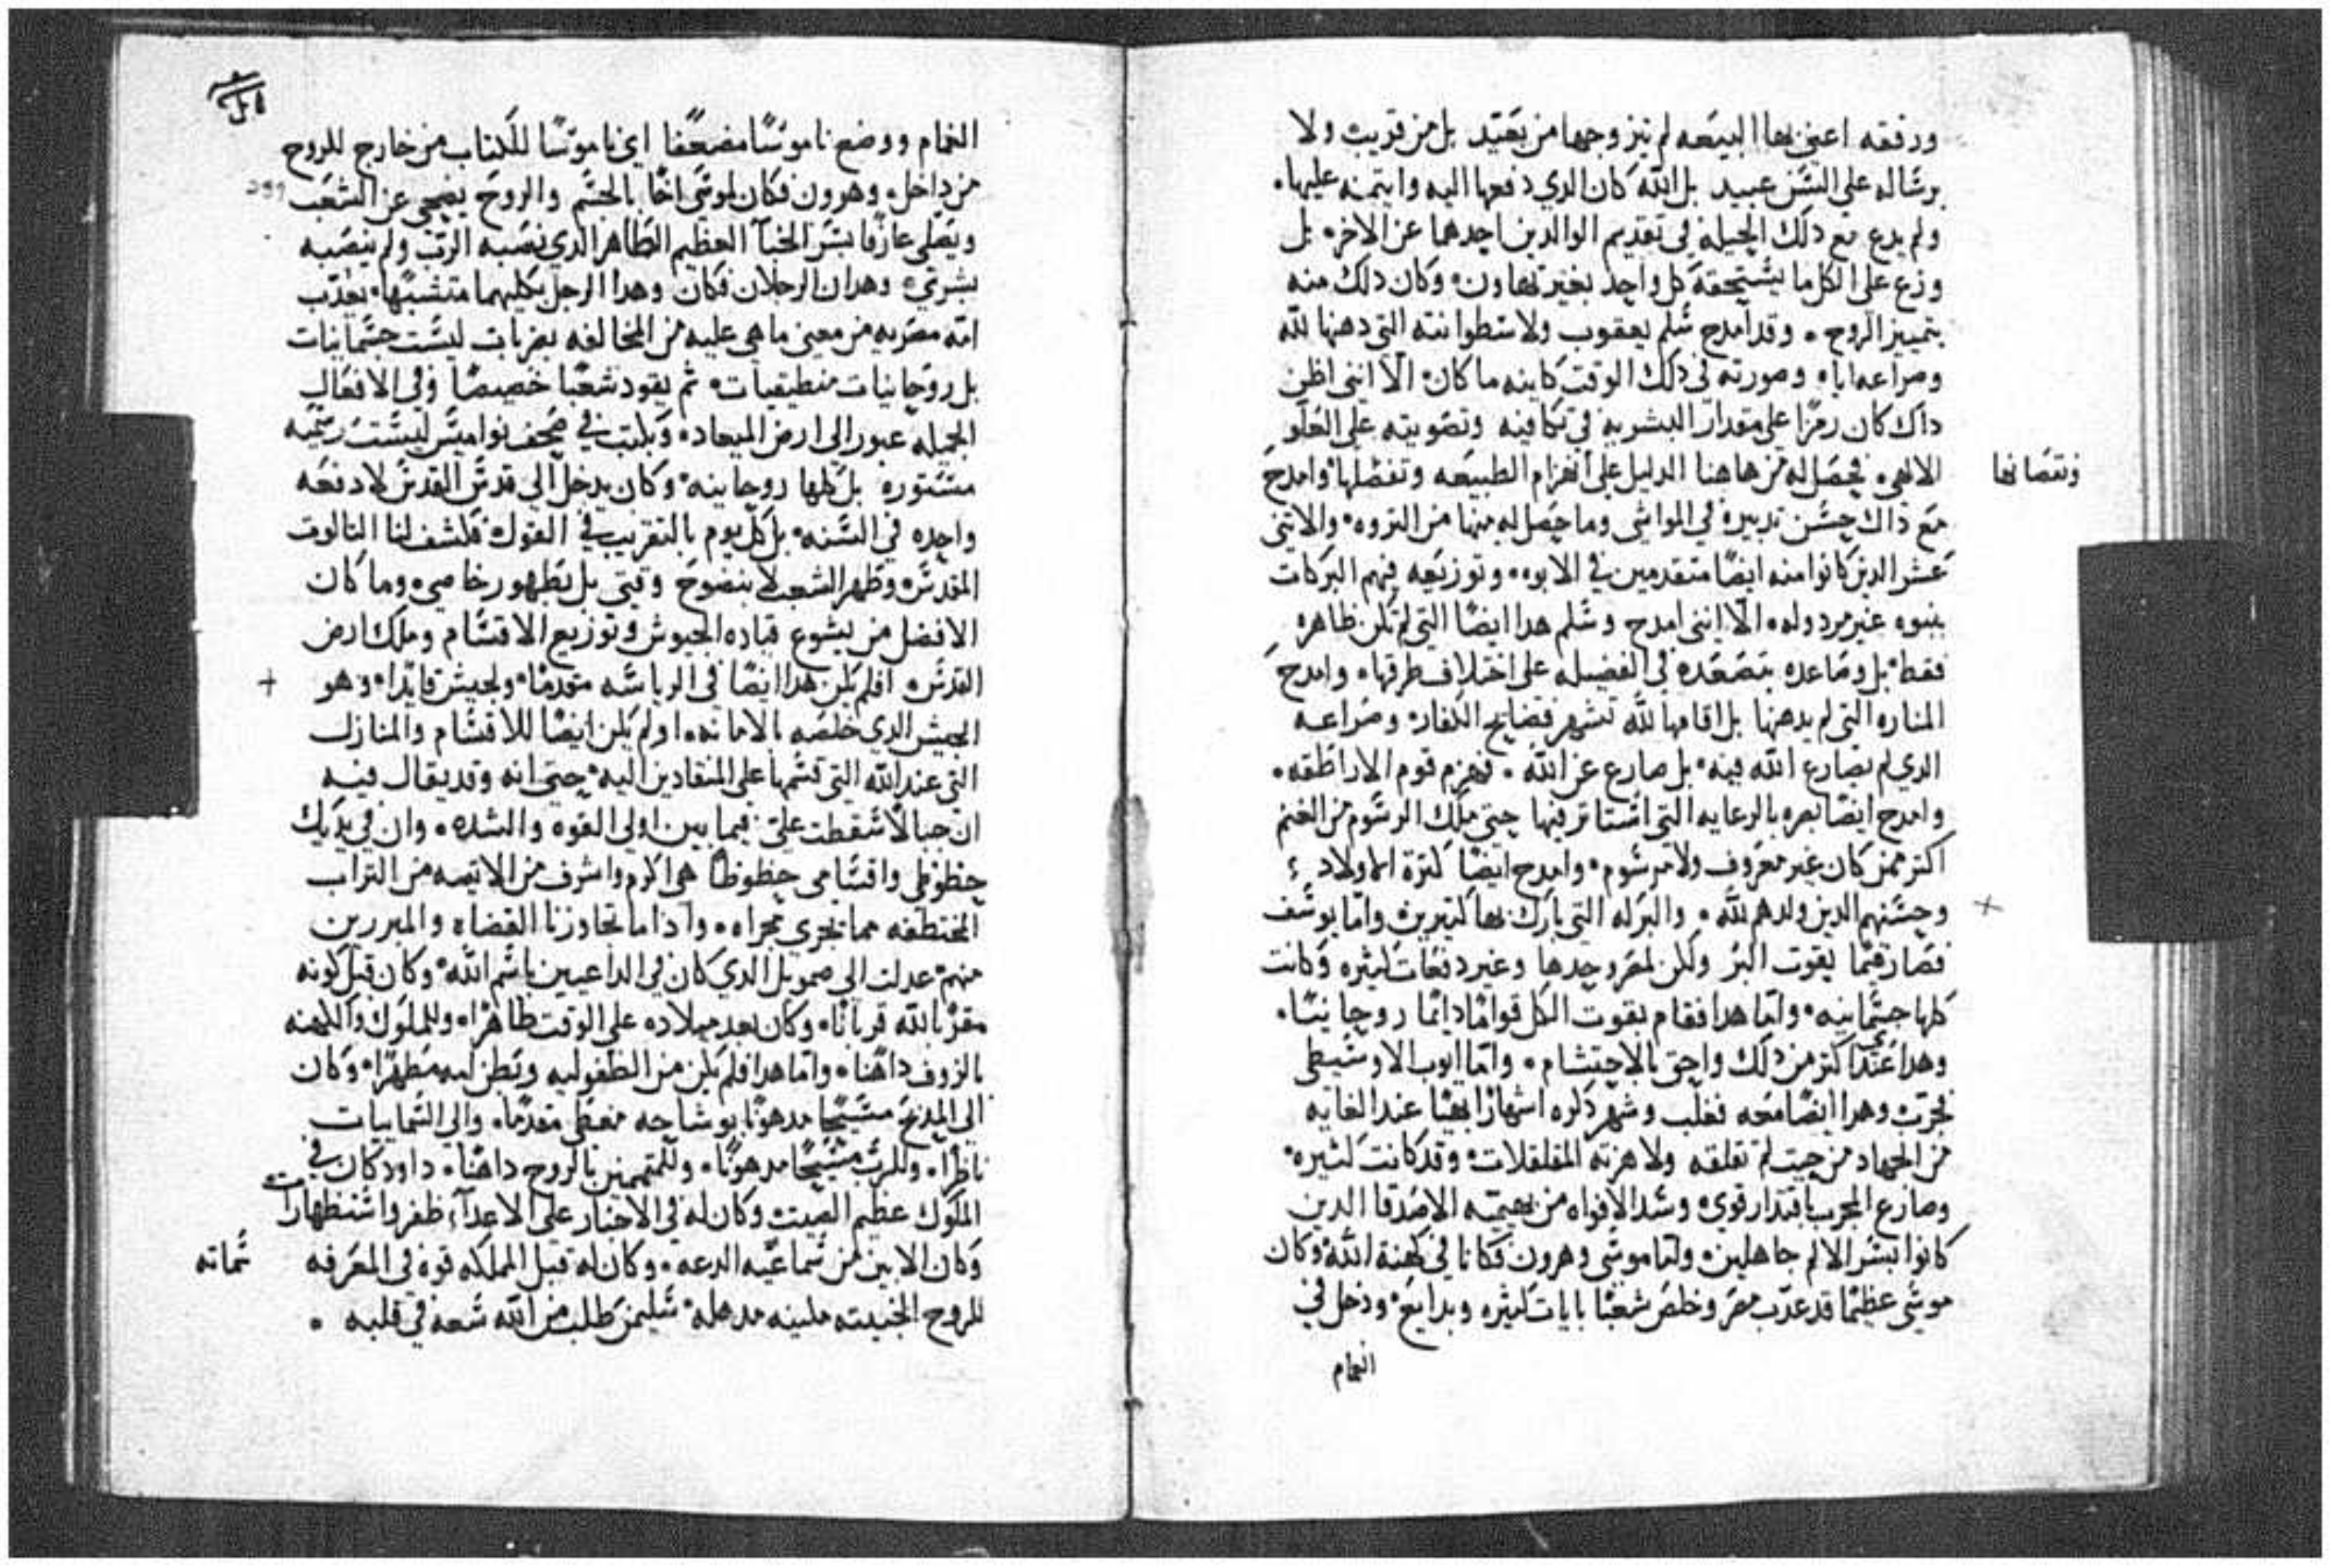 ورفقه اعني بها البيعه لم يتزوجها من بعيد بل من قريب ولا
برساله على السن عبيد بل الله كان الدي دفعها اليه وايتمنه عليها.
ولم يدع مع دلك الحيله في تقديم الوالدين احدهما عن الاخر. بل
وزع على الكل ما يستحقه كل واحد بغير تهاون. وكان دلك منه
بتمييز الروح. وقد امدح سلم يعقوب ولاسطوانته التي دهنها لله
ومراعه اياه وصورته في دلك الوقت كاينه ما كان. الا انني اظن
داك كان رمزا على مقدار البشريه في تكافيه وتصويته على العلو
الالهي. فيحصل له من هاهنا الدليل على انهزام الطبيعه وتفضلها وامدح
ونقصانها
مع داك حسن تدبيره في المواشي وما حصل له منها من التروه. والاتني
عشر الدين كانوا منه ايضا متقدمين في الابوه. وتوزيعه فيهم البركات
بنبوه غير مردوله. الا انني امدح وسلم هدا ايضا التي لم تكن ظاهره
فقط. بل ومصاعده بتصعده في الفضيله على اختلاف طرقها. وامدح
المناره التي لم يدهنها بل اقامها لله تشهر فضايح الكفار. وصراعه
الدي لم يصارع الله فيه. بل صارع عن الله. فهزم قوم الاراطقه.
وامدح ايضا بصره بالرعايه التي استاتر فيها حتي ملك المرسوم من الغنم
اكتر ممن كان غير معروف ولا مرسوم. وامدح ايضا كترة الاولاد
وحسنهم الدين ولدهم لله. والبركه التي بارك بها كتيرين واما يوسف
فصار قيما بقوت البر ولكن لمصر وحدها وغير دفعات كتيره وكانت
كلها جسمانيه. واما هدا فقام بقوت الكل قواما دايما روحانيا.
وهدا عندي اكتر من دلك واحق بالاحتشام. واما ايوب الاوسيطي
فجرب وهدا ايضا معه فغلب وشهر دكره اشهارا بهيا عند الغايه
من الجهاد من حيت لم تقلقه ولا هزته المقلقلات. وقد كانت كتيره.
وصارع المجرب باقتدار قوي. وسد الافواه من بهيميه الاصدقا الدين
كانوا بسر الالم جاهلين. واما موسى وهرون فكانا في كهنة الله. وكان
موسى عظيما قد عدب مصر وخلص شعبا بايات كتيره وبدايع. ودخل في
الغمام
الغمام ووضع ناموسا مضعفا اي ناموسا للكتاب من خارج للروح
من داخل. وهرون فكان لموسى اخا بالجسم والروح يضحي عن الشعب
ويصلى عارفا بسر الخبآ العظيم الطاهر الدي نصبه الرب ولم ينصبه
بشري. وهدان الرجلان فكان وهدا الرجل بكليهما متشبها. يعدب
امه مصريه من معنى ما هي عليه من المخالفه بضربات ليست جسمانيات
بل روحانيات منطيقيات. تم يقود شعبا خصيصا وفي الافعال
الجميله عبور الى ارض الميعاد. ويكتب في صحف نواميس ليست رسميه
مستوره بل كلها روحانيه. وكان يدخل الي قدس القدس لا دفعه
واحده في السنه. بل كل يوم بالتقريب في القول. فكشف لنا التالوت
المقدس. وطهر الشعب لا بنضوح وقتي بل بطهور خاصي. وما كان
الافضل من يشوع قياده الجيوش وتوزيع الاقسام وملك ارض
القدس. افلم يكن هدا ايضا في الرياسه متقدما. ولجيش قايدا. وهو
الجيش الدي خلصه بالامانه. اولم يكن ايضا للاقسام والمنازل
التي عند الله التي قسمها على المنقادين اليه. حتى انه وقد يقال فيه
ان حبالا سقطت علي. فيما بين اولي القوه والشده. وان في يديك
حظوظي واقسامي حظوظا هي اكرم واشرف من الاتيه من التراب
المختطفه مما يجري مجراه. وادا ما تجاوزنا القضاه والمبررين
منهم. عدلت الى صمويل الدي كان في الداعيين باسم الله. وكان قبل كونه
مقربا لله قربانا. وكان بعد ميلاده على الوقت طاهرا. وللملوك والكهنه
بالزوف داهنا. واما هدا فلم يكن من الطفوليه وبطن امه مطهرا. وكان
الى المدبح مسيحا مدهونا بوشاحه معطى متقدما. والى السمايات
ناظرا. وللرب مسيحا مدهونا. وللمتممين بالروح داهنا. داود كان في
الملوك عظيم الصيت وكان له في الاخبار على الاعدآء ظفر واستظهارات
وكان الابين من سماعيه الدعه. وكان له قبل المملكه قوه في المعرفه
سماته
للروح الخبيته ملينه مدهله. سليمن طلب من الله سعه في قلبه.